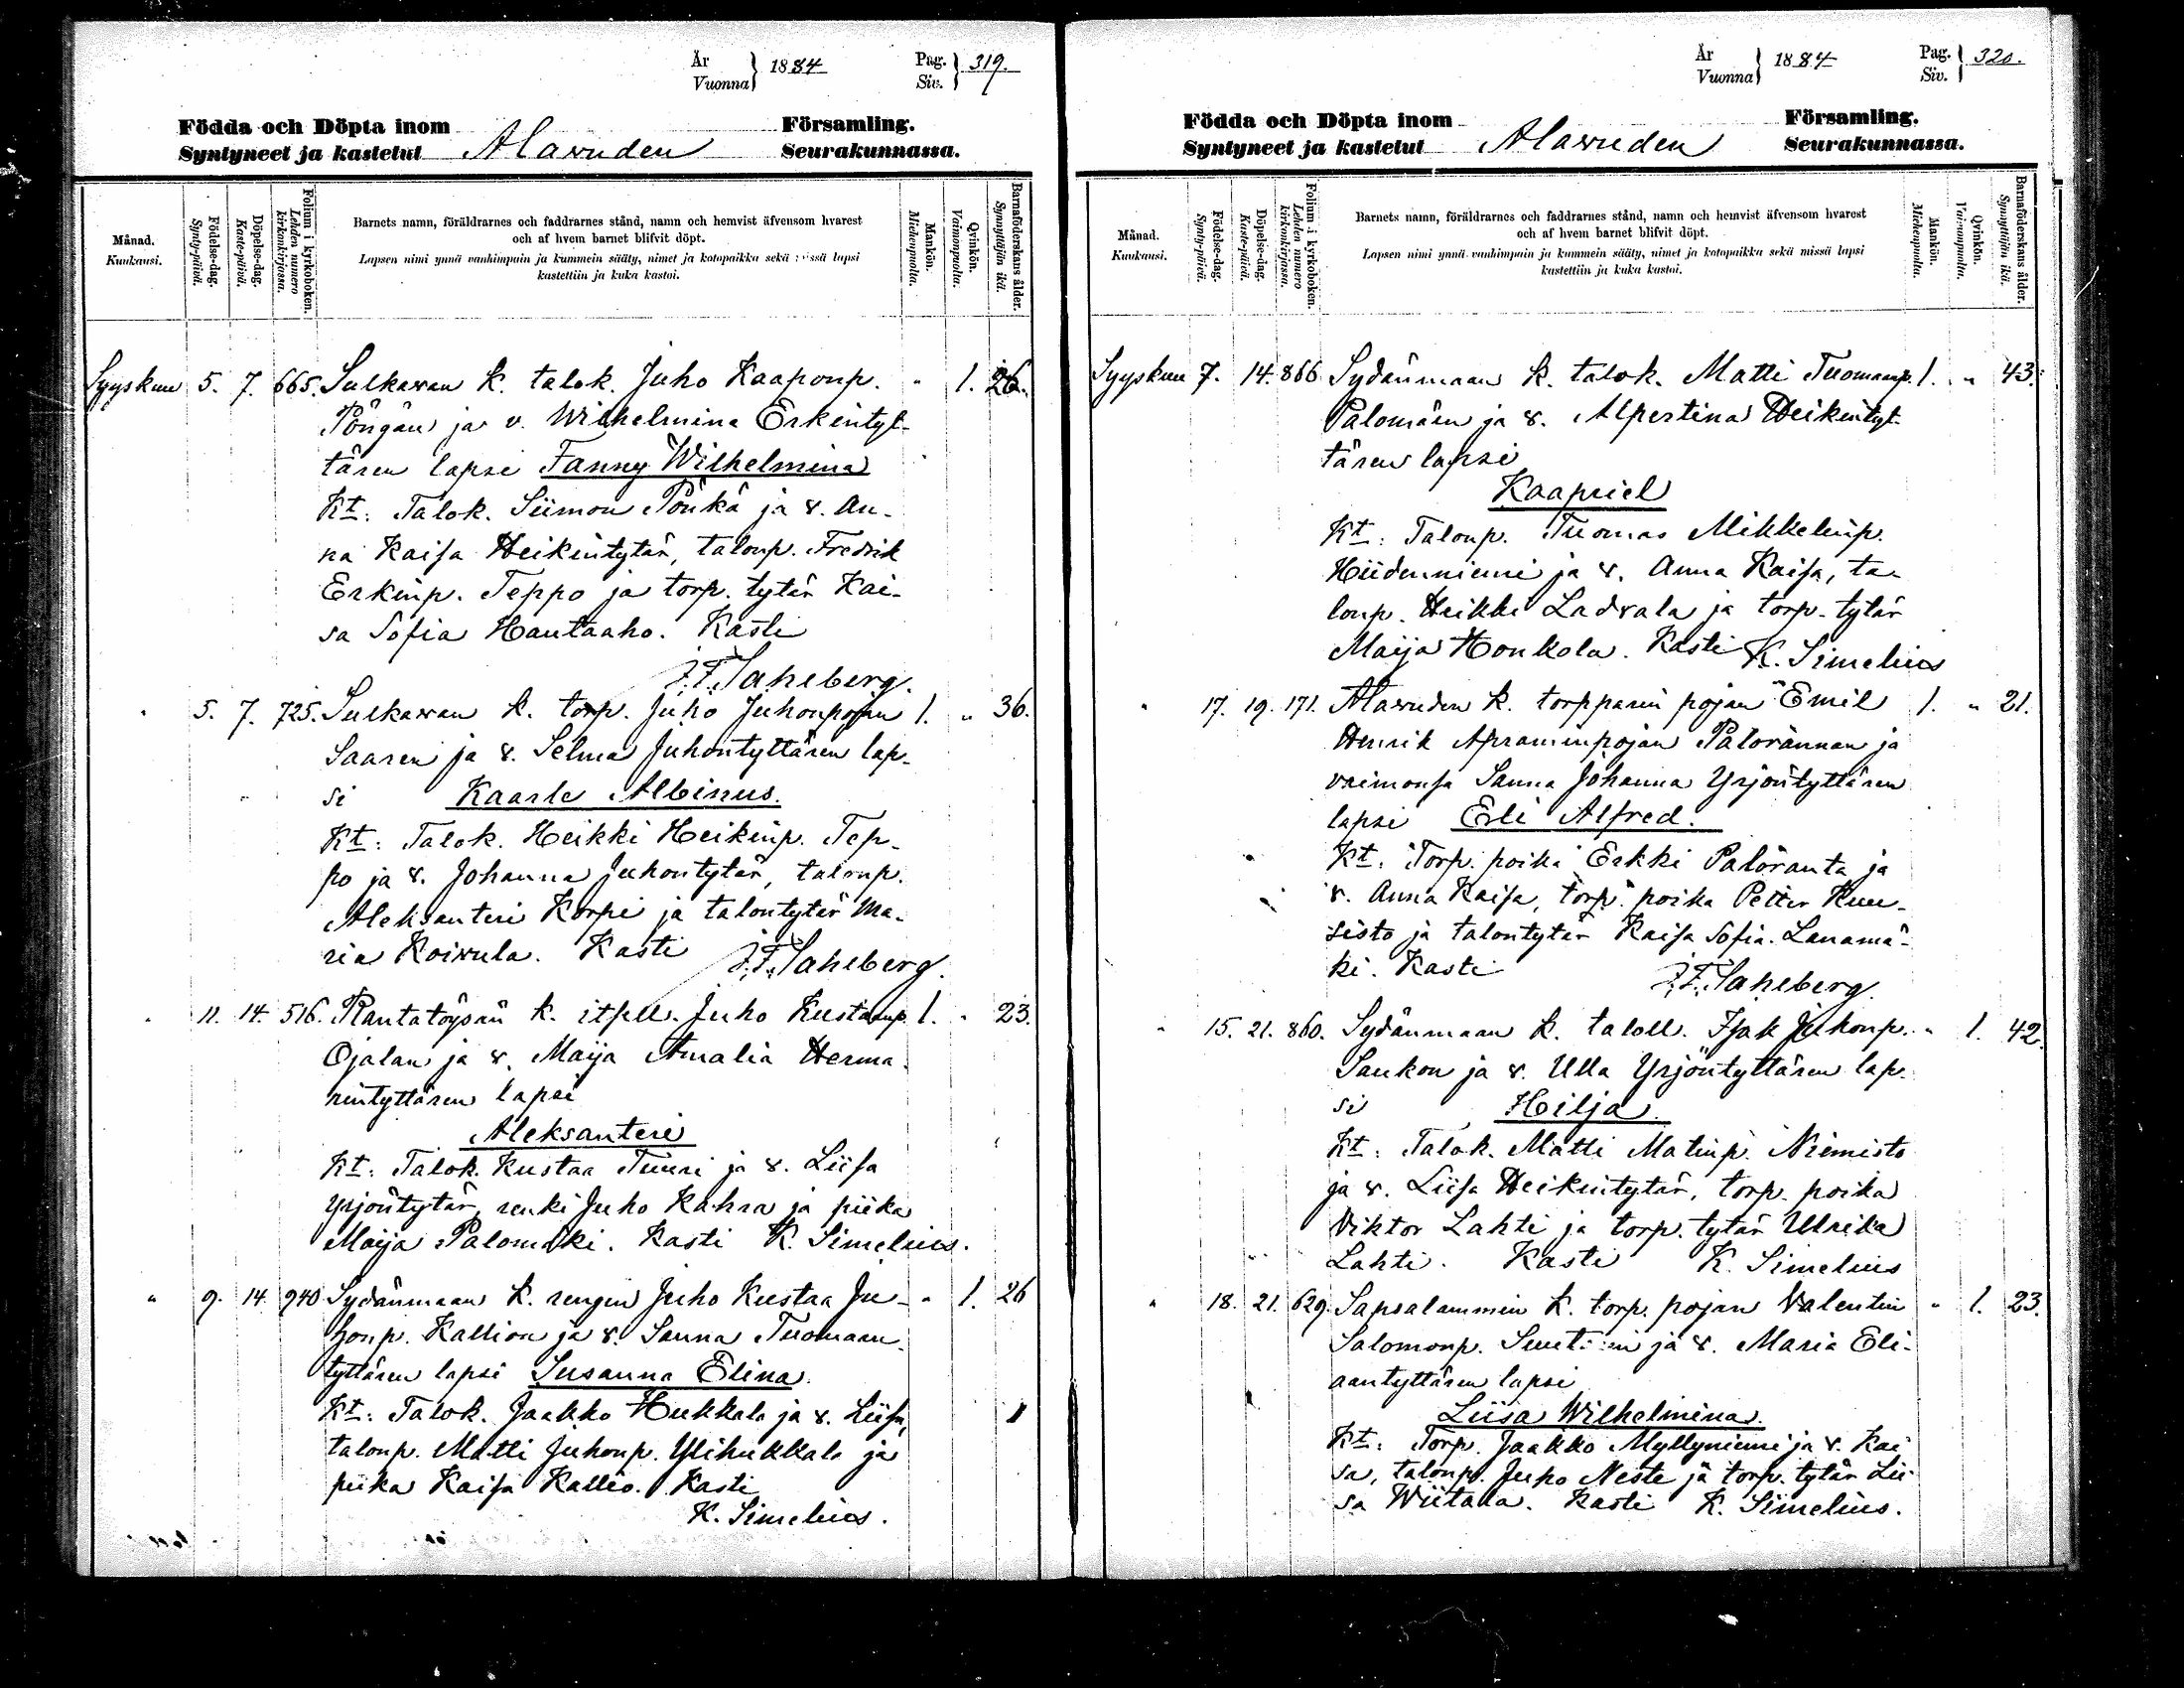 År
Vuonna
1884
Pag.
Siv.
319.
Födda och Döpta inom
Församling.
Syntyneet ja kastetut
Alawuden
Seurakunnassa.
Månad.
Kuukausi.
Födelse-dag.
Synty-päivä.
Döpelse-dag.
Kaste-päivä.
Folium i kyrkoboken.
Lehden numero
kirkonkirjassa.
Barnets namn, föräldrarnes och faddrarnes stånd, namn och hemvist äfvensom hvarest
och af hvem barnet blifvit döpt.
Lapsen nimi ynnä vanhimpain ja kummein sääty, nimet ja kotopaikka sekä missä lapsi
kastettiin ja kuka kastoi.
Mankön.
Miehenpuolta.
Qvinkön.
Vaimonpuolta.
Barnaföderskans ålder.
Synnyttäjän ikä.
Syyskuu 5. 7. 665. Sulkawan k. talok. Juho Kaaponp. " 1. 26.
Pöngän ja v. Wilhelmina Erkintyt-
tären lapsi Fanny Wilhelmina
Kt: Talok. Siimon Pönkä ja v. An-
na Kaisa Heikintytär, talonp. Fredrik
Erkinp. Teppo ja torp. tytär Kai-
sa Sofia Hautaaho. Kasti
J.F. Saheberg.
" 5. 7. 725. Sulkawan k. torp. Juho Juhonpojan 1. " 36.
Saaren ja v. Selma Juhontyttären lap-
si Kaarle Albinus.
Kt: Talok. Heikki Heikinp. Tep-
po ja v. Johanna Juhontytär, talonp.
Aleksanteri Korpi ja talontytär Ma-
ria Koiwula. Kasti J.F. Saheberg.
" 11. 14. 516. Rantatöysän k. itsell. Juho Kustaanp. 1. " 23.
Ojalan ja v. Maija Amalia Herma-
nintyttären lapsi
Aleksanteri
Kt: Talok. Kustaa Tuuri ja v. Liisa
Yrjöntytär, renki Juho Kahra ja piika
Maija Palomäki. Kasti K. Simelius.
" 9. 14 940 Sydänmaan k. rengin Juho Kustaa Ju- " 1. 26
honp. Kallion ja v. Sanna Tuomaan-
tyttären lapsi Susanna Elina.
Kt: Talok. Jaakko Hukkala ja v. Liisa,
talonp. Matti Juhonp. Ylihukkala ja
piika Kaisa Kallio. Kasti
K. Simelius.
År
Vuonna
1884
Pag.
Siv.
320.
Födda och Döpta inom
Församling.
Syntyneet ja kastetut
Alawuden
Seurakunnassa.
Månad.
Kuukausi.
Födelse-dag.
Synty-päivä.
Döpelse-dag.
Kaste-päivä.
Folium i kyrkoboken.
Lehden numero
kirkonkirjassa.
Barnets namn, föräldrarnes och faddrarnes stånd, namn och hemvist äfvensom hvarest
och af hvem barnet blifvit döpt.
Lapsen nimi ynnä vanhimpain ja kummein sääty, nimet ja kotopaikka sekä missä lapsi
kastettiin ja kuka kastoi.
Mankön.
Miehenpuolta.
Qvinkön.
Vaimonpuolta.
Barnaföderskans ålder.
Synnyttäjän ikä.
Syyskuu 7. 14. 866 Sydänmaan k. talok. Matti Tuomaanp. 1. " 43.
Palomäen ja v. Alpertina Heikintyt-
tären lapsi
Kaapriel
Kt: Talonp. Tuomas Mikkelinp.
Hiidenniemi ja v. Anna Kaisa, ta-
lonp. Heikki Ladvala ja torp. tytär
Maija Honkola. Kasti K. Simelius
" 17. 19. 171. Alawuden k. torpparin pojan Emil 1. " 21.
Henrik Apraminpojan Palorannan ja
vaimonsa Sanna Johanna Yrjöntyttären
lapsi Erli Alfred.
Kt: Torp. poika Erkki Paloranta ja
v. Anna Kaisa, torp. poika Petter Kuu-
sisto ja talontytär Kaisa Sofia Lanamä-
ki. Kasti J.F. Saheberg.
" 15. 21. 860. Sydänmaan k. taloll. Isak Juhonp. " 1. 42.
Saukon ja v. Ulla Yrjöntyttären lap-
si Hilja.
Kt: Talok. Matti Matinp. Niemistö
ja v. Liisa Heikintytär, torp. poika
Viktor Lahti ja torp. tytär Ulrika
Lahti. Kasti K. Simelius
" 18. 21. 629. Sapsalammin k. torp. pojan Valentin " 1. 23.
Salomonp. ja v. Maria Eli-
aantyttären lapsi
Liisa Wilhelmina.
Kt: Torp. Jaakko Myllyniemi ja v. Kai
sa, talonp. Juho Neste ja torp. tytär Lii-
sa Wiitala. Kasti K. Simelius.